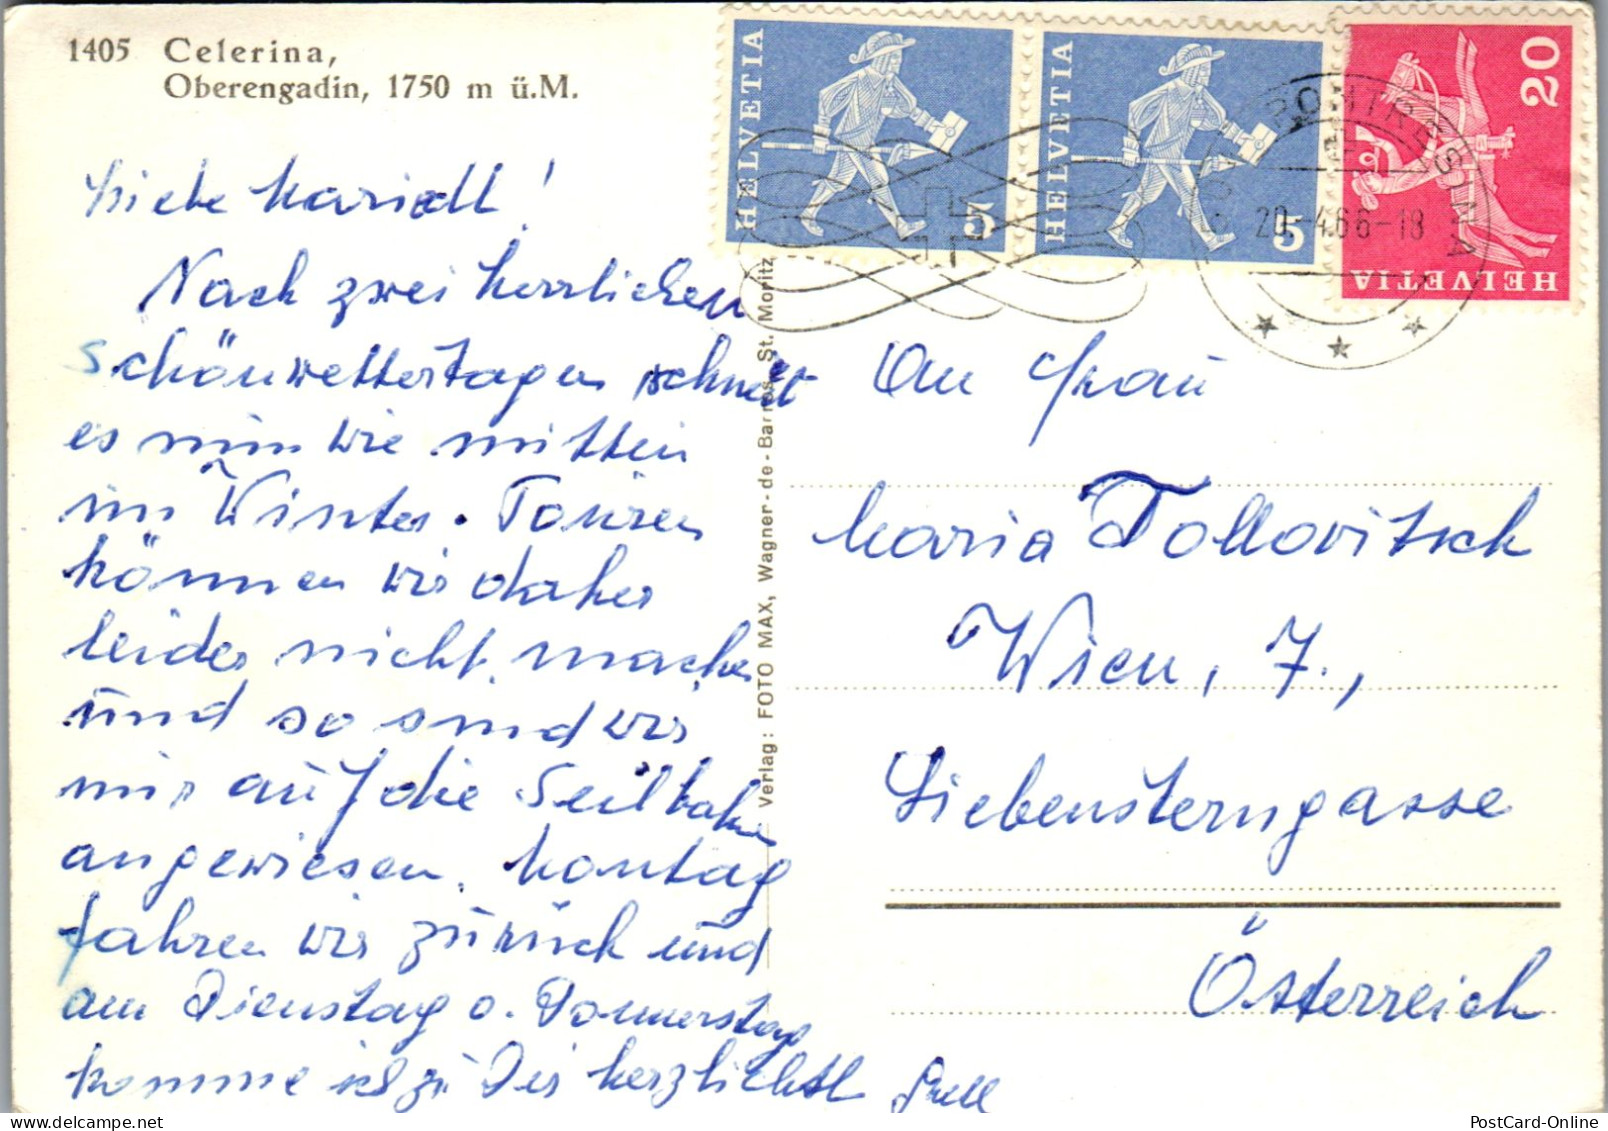 1405 Celerina,
Oberengadin, 1750 m ü.M.
HELVETIA 5
HELVETIA 5
HELVETIA 20
PONTRESINA
20.-4.66-18
Liebe Mariedl!
Nach zwei herrlichen
Schönwettertagen schneit
es nun wie mitten
im Winter. Touren
können wir daher
leider nicht machen
und so sind wir
nur auf die Seilbahn
angewiesen. Montag
fahren wir zurück und
am Dienstag o. Donnerstag
komme ich zu Dir herzlichst
Verlag: FOTO MAX, Wagner-de-Barros, St. Moritz
An Frau
Maria Tollovitsch
Wien, 7.,
Siebensterngasse
Österreich
PostCard-Online